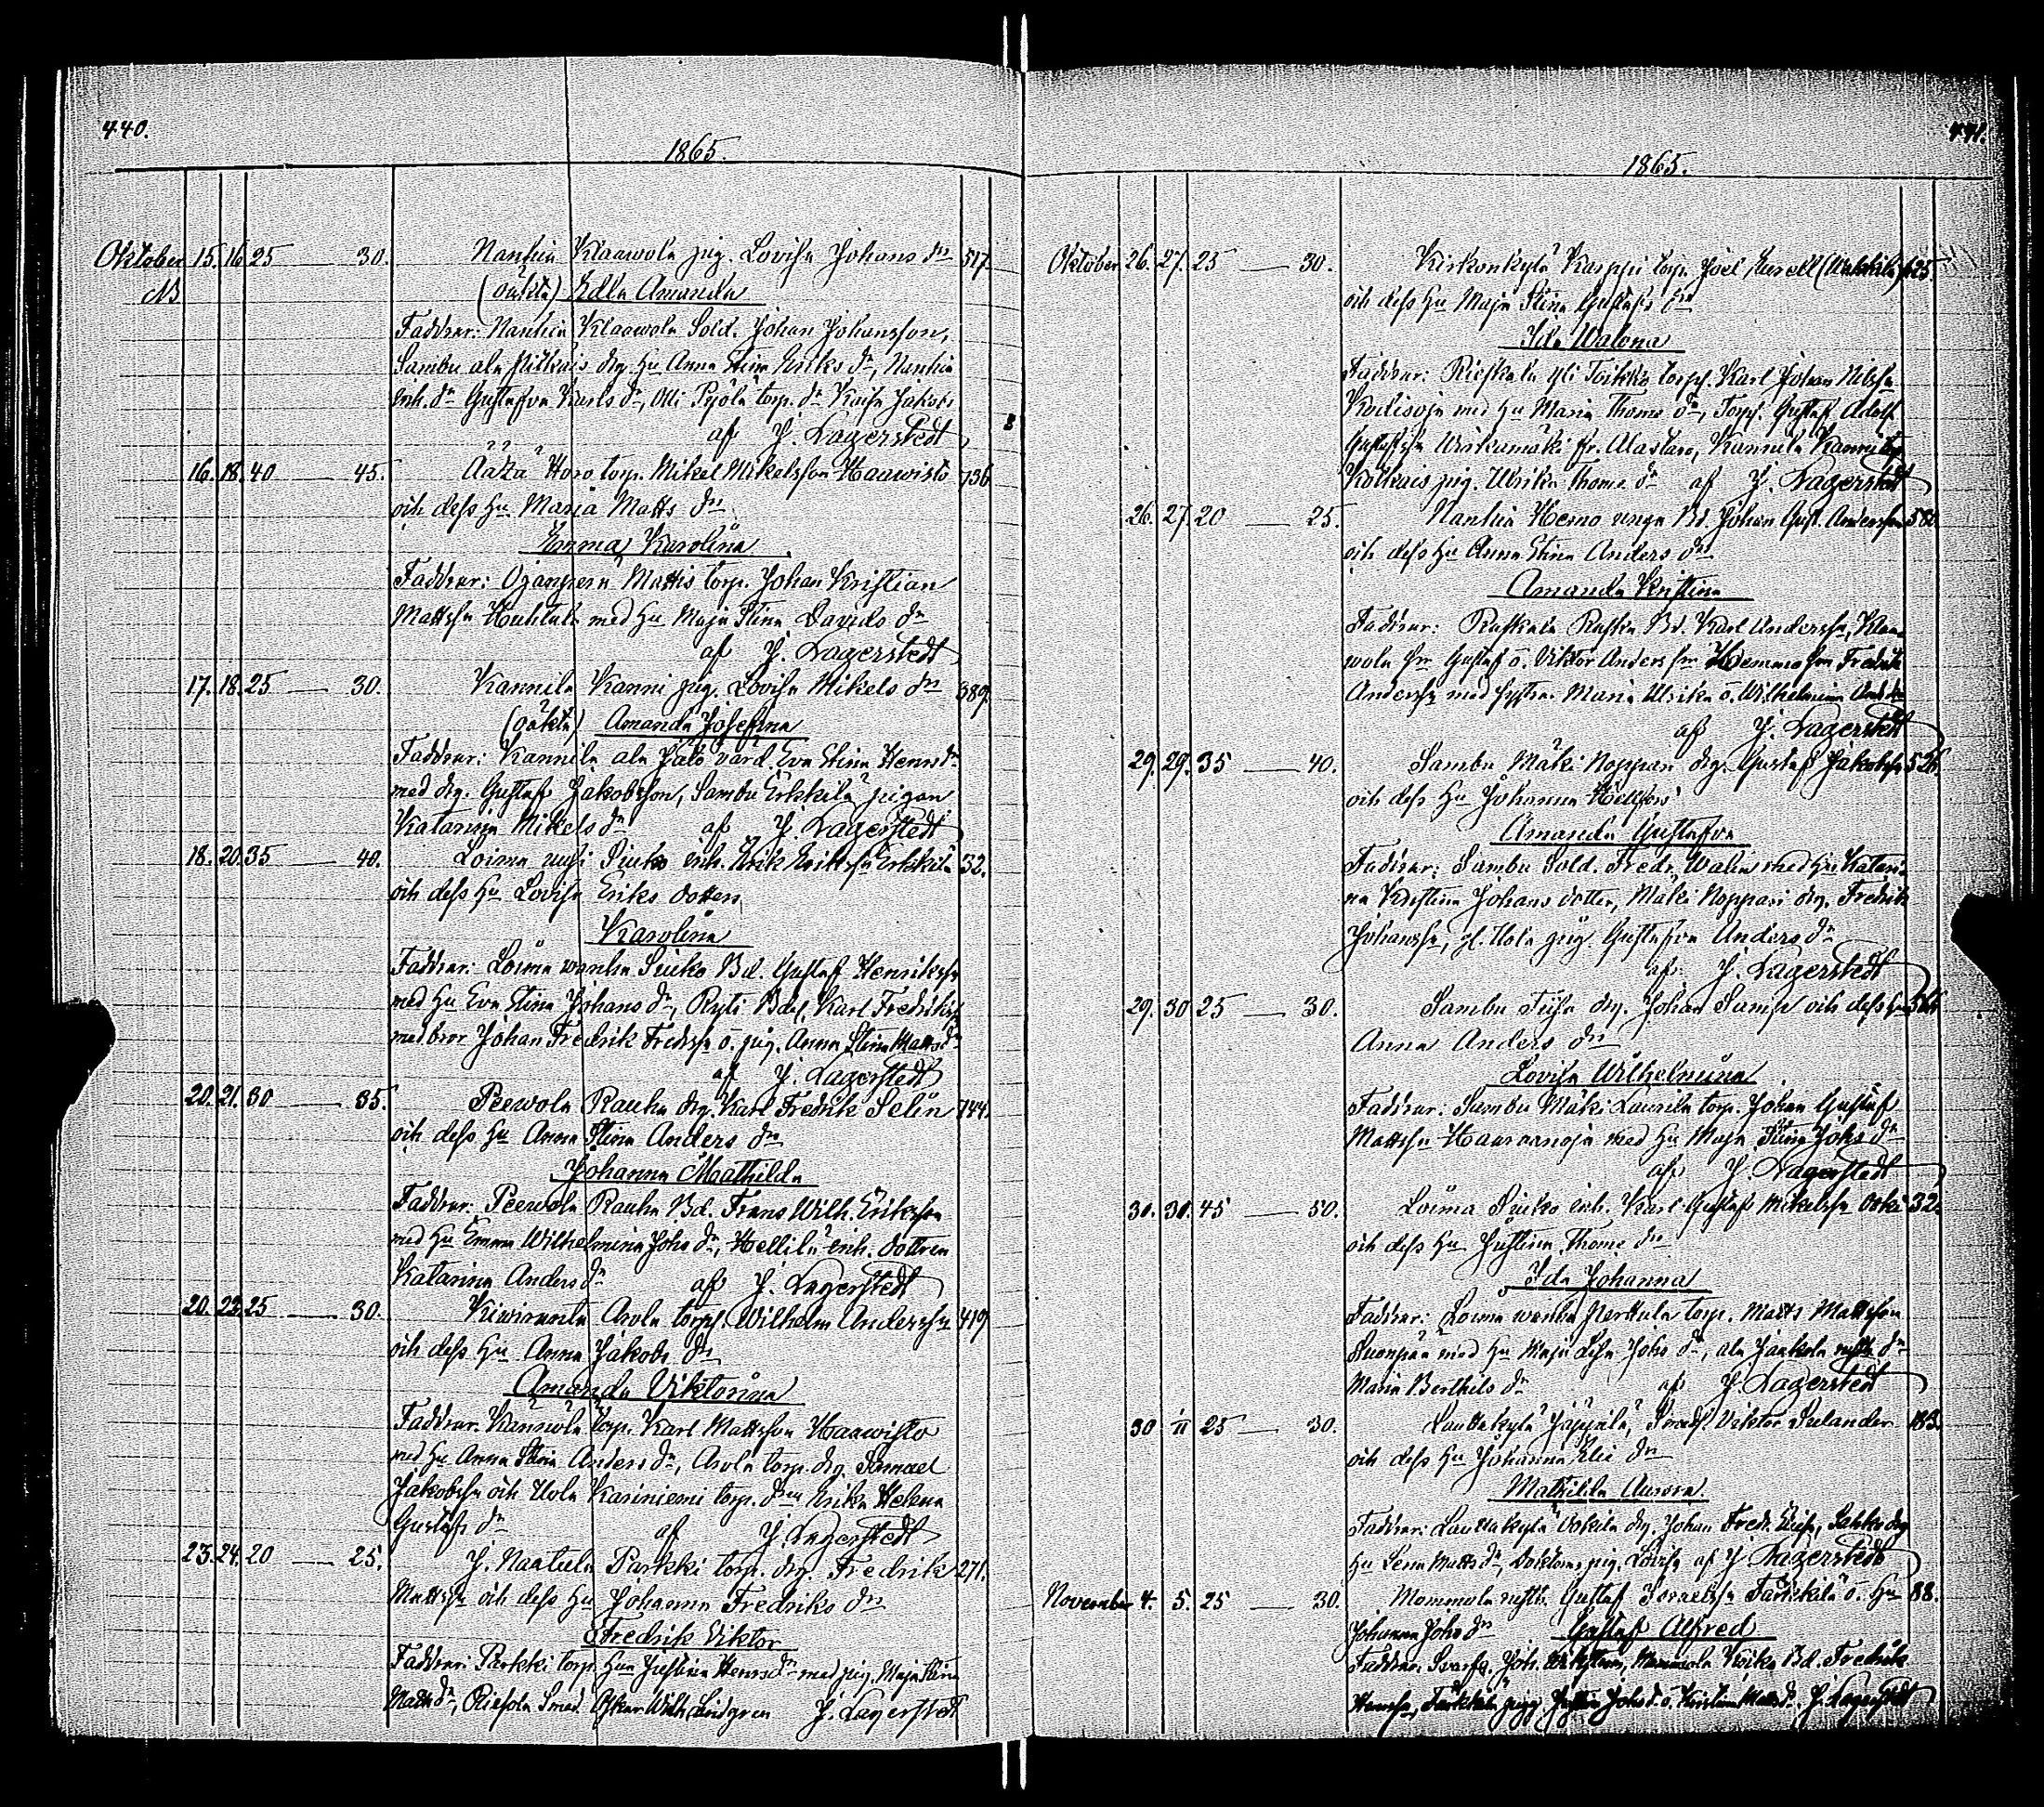 440.
1865.
Oktober 15. 16. 25 — 30. Nanhia Klaawola pig. Lovisa Johans dr 517.
NB (oäkta) Edla Amanda
Faddrar: Nanhia Klaawola Sold. Johan Johansson,
Sambu ala drg. Hu Anna Stina Eriks dr, Nanhia
inh. dr Gustafva Karls dr, Olli Pejola torp. dr Kaisa Jakobs
af J. Lagerstedt
16. 18. 40 — 45. Äätzä Horo torp. Mikel Mikelsson Haawisto 736
och dess Hu Maria Matts dr
Emma Karolina
Faddrar: Ojanperä Mattis torp. Johan Kristian
Mattss Huhtala med Hu Maja Stina Davids dr
af J. Lagerstedt
17. 18. 25 — 30. Kannila Kanni pig. Lovisa Mikels dr 389.
(oäkta) Amanda Josefina
Faddrar: Kannila ala Jälö värd. Eva Stina Henrs dr
med drg. Gustaf Jakobsson, Sambu Erkkilä pigan
Katarina Mikels dr af J. Lagerstedt
18. 20. 35 — 40. Loima uusi Siuko inh. Erik Erikss Erkkilä 32.
och dess Hu Lovisa Eriks dotter
Karolina
Faddrar: Loima wanha Siuko Bd. Gustaf Henrikss
med Hu Eva Stina Johans dr, Ryti Bdes. Karl Fredrikss
med bror Johan Fredrik Fredrss o. pig. Anna Stina Matts dr
af J. Lagerstedt
20. 21. 30 — 35. Peewola Rauha drg. Karl Fredrik Selin 744.
och dess Hu Anna Stina Anders dr
Johanna Mathilda
Faddrar: Peewola Rauha Bd. Frans Wilh. Eriksson
med Hu Emma Wilhelmina Johs dr, Hellilä inh. dottren
Katarina Anders dr af J. Lagerstedt
20. 22. 25 — 30. Kiwiranta Arola torp. Wilhelm Anderss 419
och dess Hu Anna Jakobs dr
Amanda Viktorina
Faddrar: Kännölä torp. Karl Mattsson Haawisto
med Hu Anna Stina Anders dr, Arola torp. drg. Samuel
Jakobss och Uola Kariniemi torp. dr Erika Helena
Gustafs dr af J. Lagerstedt
23. 24. 20 — 25. J. Naatula Parkki torp. drg. Fredrik 271.
Mattss och dess Hu Johanna Fredriks dr
Fredrik Viktor
Faddrar: Parkki torp. Hu Justina Henrs dr med pig. Maja Stina
Matts dr, Riesola Smed. Oskar Wilh. Lindgren J. Lagerstedt
441.
1865.
Oktober 26. 27. 25 — 30. Kirkonkylä Karppi torp. Joel 625.
och dess Hu Maja Stina Gustafs dr
Ida Walona
Faddrar: Rieskala yli Toikko torp. Karl Johan Nilss
med Hu Maria Thoms dr, Torp. Gustaf Adolf
Gustafss fr. Alastaro, Kannila Kanni torp.
pig. Ulrika Thoms dr af J. Lagerstedt
26. 27. 20 — 25. Nanhia Hemo unga Bd. Johan Gust. Andersson 580.
och dess Hu Anna Stina Anders dr
Amanda Kristina
Faddrar: Raskala Raska Bd. Karl Anderss, Klaa-
wola Gustaf o. Viktor Anders Hemmo Fredrik
Anderss med systra. Maria Ulrika o. Wilhelmina And. dr
af J. Lagerstedt
29. 29. 35 — 40. Sambu Mäki Noppari drg. Gustaf Jakobss 526.
och dess Hu Johanna
Amanda Gustafva
Faddrar: Sambu Sold. Fredr. Walin med Hu Katari-
na Kristina Johans dotter, Mäki Noppari drg. Fredrik
Johanss, gl. Uola pig. Gustafva Anders dr
af J. Lagerstedt
29. 30 25 — 30. Sambu drg. Johan och dess Hu
Anna Anders dr
Lovisa Wilhelmina
Faddrar: Sambu Mäki Laurila torp. Johan Gustaf
Mattss Haaranoja med Hu Maja Stina Johs dr
af J. Lagerstedt
30. 30. 45 — 50. Loima Siuko inh. Karl Gustaf Mikelss 32.
och dess Hu Justina Thoms dr
Ida Johanna
Faddrar: Loima wanha Perttula torp. Matts Mattsson
Suonpää med Hu Maja Lisa Johs dr, ala Jaakola dr
Maria Berthils dr af J. Lagerstedt
30 11 25 — 30. Lauttakylä Viktor Selander 183.
och dess Hu Johanna Elie dr
Mathilda Aurora
Faddrar: Lauttakylä drg. Johan Fredr.
Hu Lena Matts dr, pig. Lovisa af J. Lagerstedt
November 4. 5. 25 — 30. Mommola Gustaf Israelss o. Hu 88.
Johanna Johs dr Gustaf Alfred
Faddrar: Joh. Mommola Bd. Fredrik
Henrss, Johs dr o. Kristina Matts dr. J. Lagerstedt